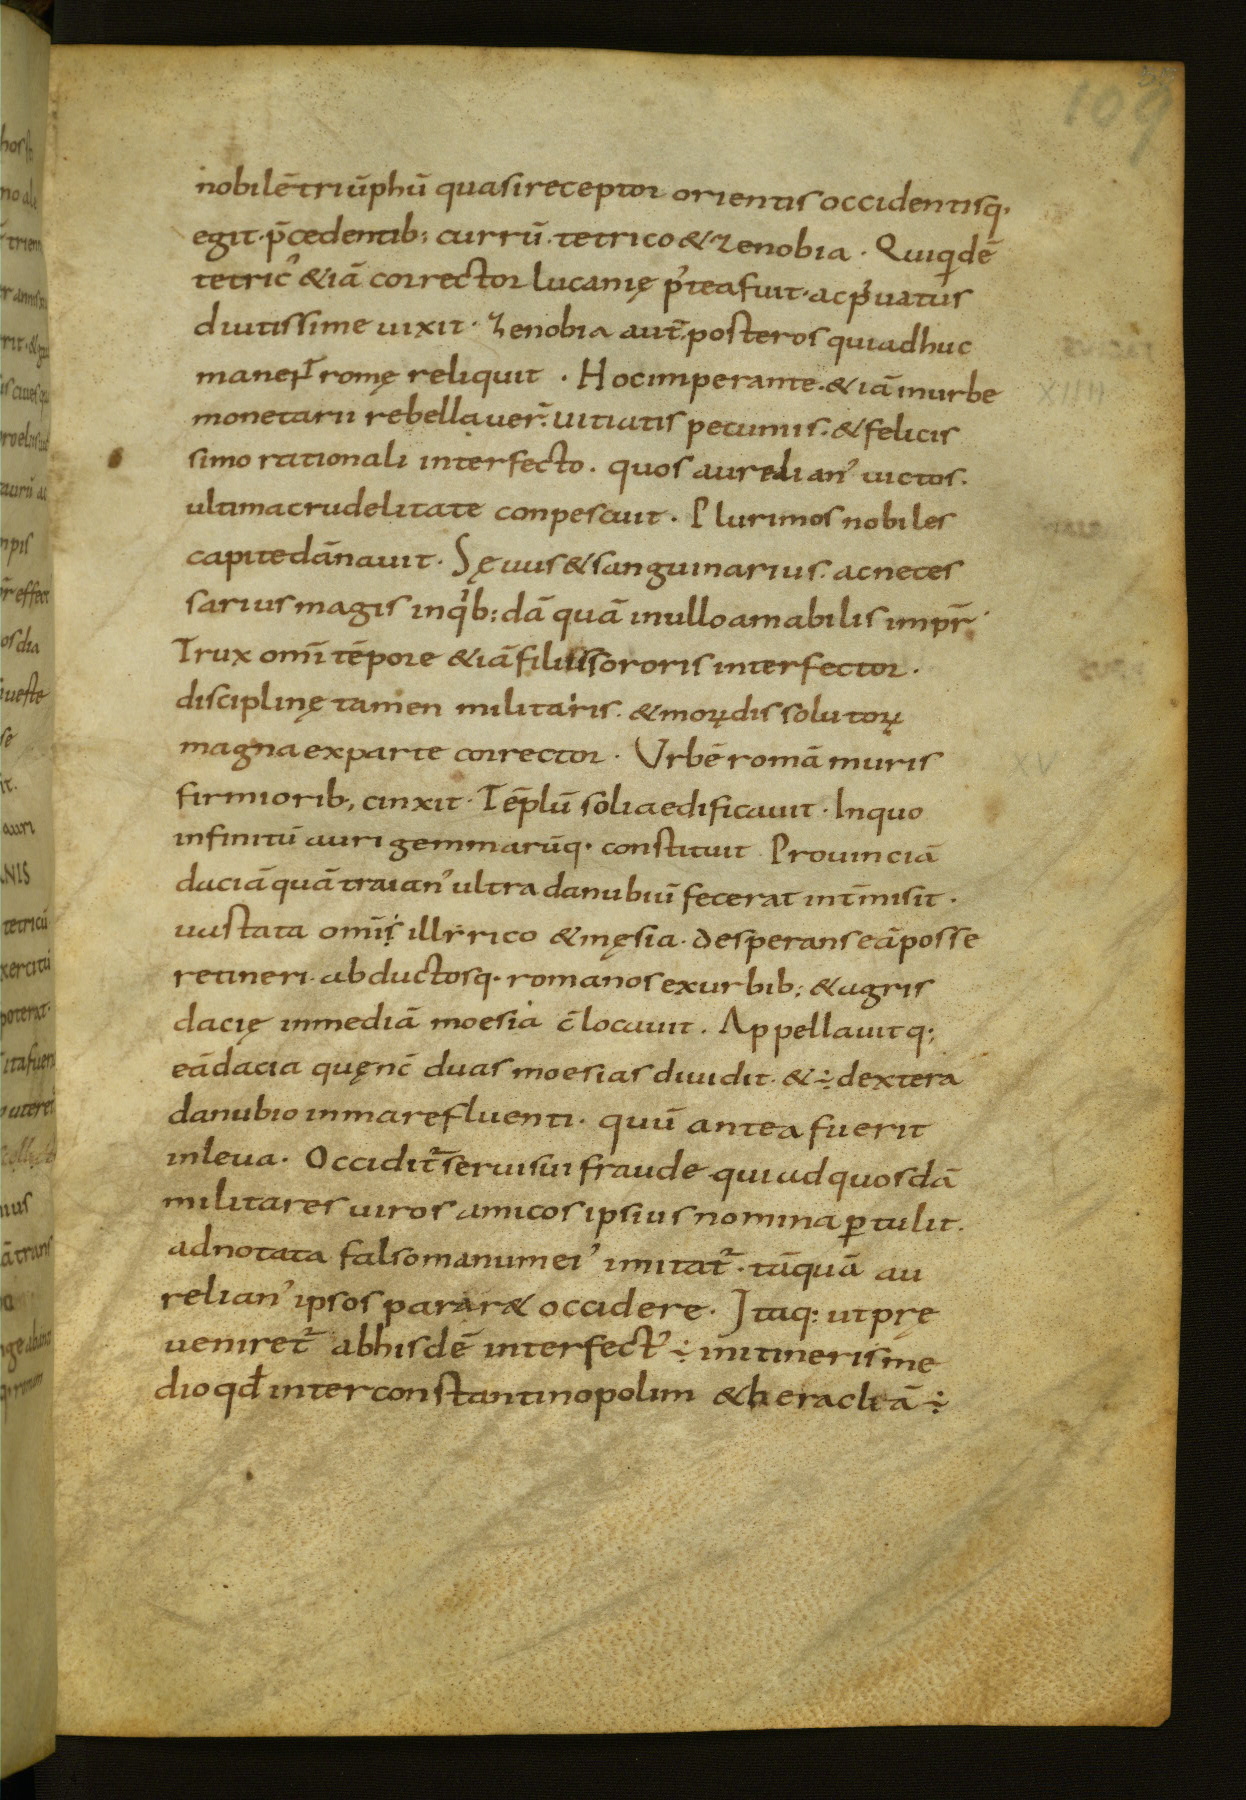 109
nobilē triūphū quasi receptor orientis occidentisq·
egit· p̄cedentib; currū· tetrico & zenobia · Quiqidē
tetric᾽ & iā corrector lucanię p᾽tea fuit· ac p̉uatus
diutissime uixit · Zenobia aut̄ posteros qui adhuc
manent̄ romę reliquit · Hoc imperante· & iā in urbe
monetarii rebellauer̄· uitiatis pecuniis· & felicis
simo rationali interfecto· quos aurelian᾽ uictos·
ultima crudelitate conpescuit · Plurimos nobiles
capite dānauit · Sęuus & sanguinarius· ac neces
sarius magis in qib; dā quā in ullo amabilis impr̄
Trux omī tēpore & iā filii sororis interfector·
disciplinę tamen militaris· & moꝝ dissolutoꝝ
magna ex parte corrector · Vrbē romā muris
firmiorib; cinxit · Tēplū soli aedificauit · In quo
infinitū auri gemmarūq· constituit Prouinciā
daciā quā traian᾽ ultra danubiū fecerat int̄misit ·
uastata omīs illirico & męsia· desperans eā posse
retineri· abductosq· romanos ex urbib; & agris
dacię in mediā moesia c̄locauit · Appellauitq;
eā dacia quę nc̄ duas moesias diuidit· & ÷ dextera
danubio in mare fluenti· quū antea fuerit
in leua· Occidit̄ serui sui fraude qui ad quosdā
militares uiros amicos ipsius nomina ꝑtulit·
adnotata falso manum ei᾽ imitat̄ · tāquā au
relian᾽ ipsos parar& occidere· Itaq; ut prę
ueniret̄ ab hisdē interfect᾽ ÷ in itineris me
dio qđ inter constantinopolim & heracleā ÷